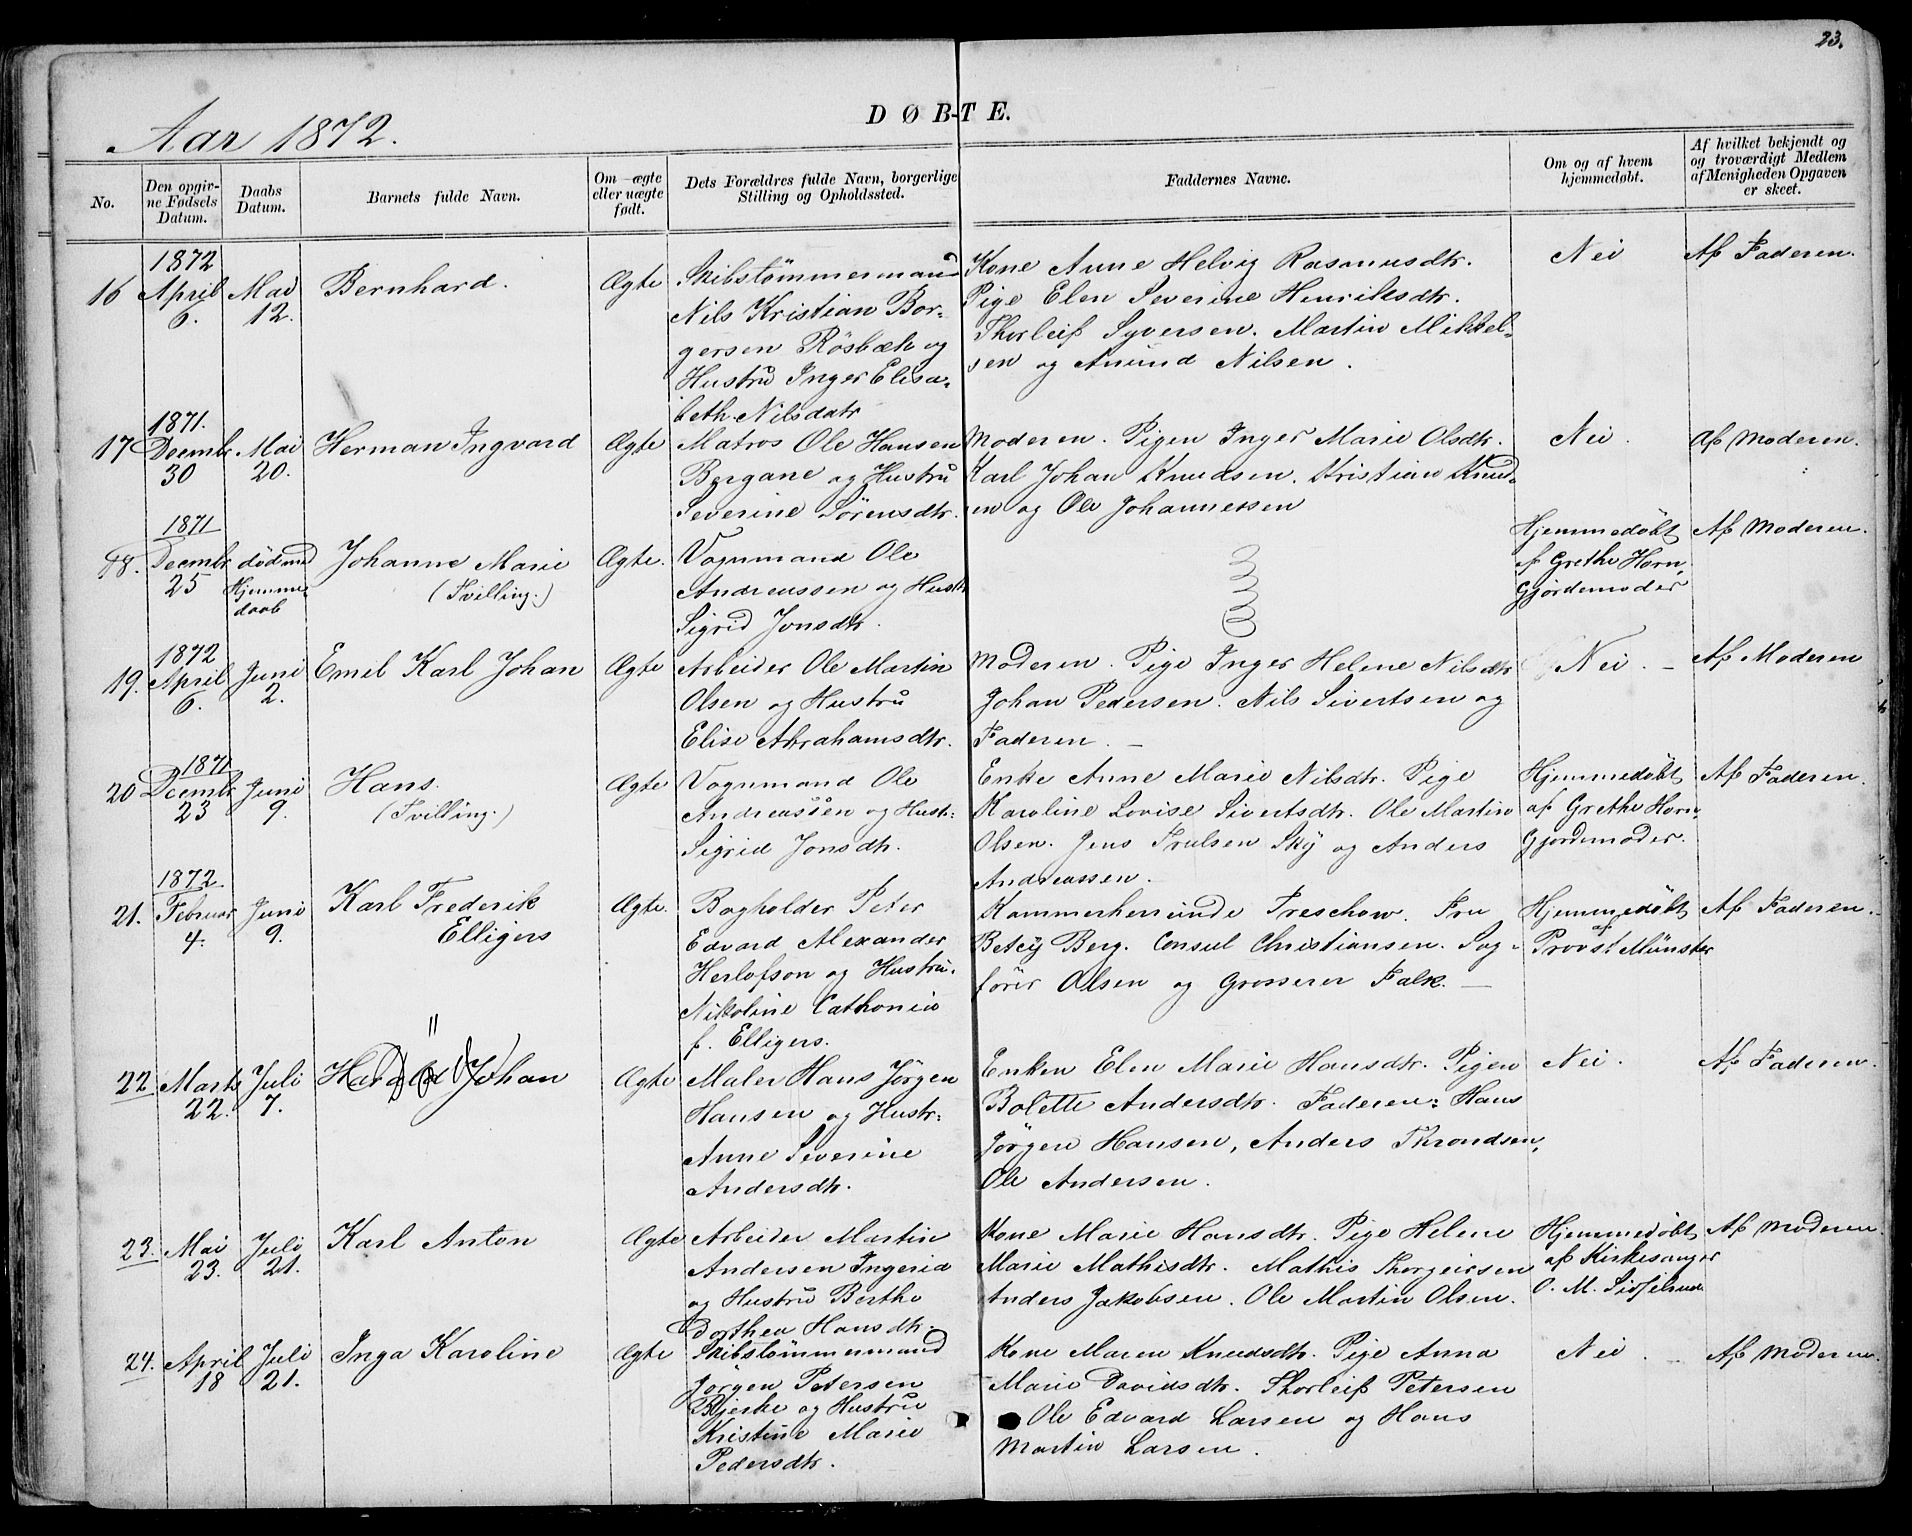 23.
DØBTE.
Aar 1872.
No.
Den opgivne Fødsels Datum.
Daabs Datum.
Barnets fulde Navn.
Om ægte eller uægte født.
Dets Forældres fulde Navn, borgerlige Stilling og Opholdssted.
Faddernes Navne.
Om og af hvem hjemmedøbt.
Af hvilket bekjendt og og troværdigt Medlem af Menigheden Opgaven er skeet.
16
1872
April
6.
Mai
12.
Bernhard.
Ægte
Skibstömmermand
Nils Kristian Bor-
gersen Rösbæk og
Hustru Inger Elisa-
beth Nilsdatr
Kone Anne Helvig Rasmusdtr.
Pige Elen Severine Henriksdtr.
Thorleif Syversen. Martin Mikkel-
sen og Anund Nilsen.
Nei
Af Faderen.
17
1871.
Decembr
30
Mai
20.
Herman Ingvard
Ægte
Matros Ole Hansen
Bergane og Hustru
Severine Sörensdtr.
Moderen. Pigen Inger Marie Olsdtr.
Karl Johan Knudsen. Kristian Knud-
sen og Ole Johannessen
Nei.
af Moderen.
18.
1871
Decembr
25
död med
Hjemme-
daab
Johanne Marie
(Tvilling.)
Ægte.
Vognmand Ole
Andreassen og Hustr
Sigrid Jonsdtr.
Hjemmedøbt
af Grethe Horn,
Gjördemoder
Af Moderen.
19.
1872
April
6.
Juni
2.
Emil Karl Johan
Ægte
Arbeider Ole Martin
Olsen og Hustru
Elise Abrahamsdtr.
Moderen. Pige Inger Helene Nilsdtr
Johan Pedersen. Nils Sivertsen og
Faderen. —
Nei. —
Af Moderen
20
1871
Decembr
23
Juni
9.
Hans.
(Tvilling.)
Ægte
Vognmand Ole
Andreassen og Hust:
Sigrid Jonsdtr.
Enke Anne Marie Nilsdtr. Pige
Karoline Lovise Sivertsdtr. Ole Martin
Olsen. Jens Trulsen Sky og Anders
Andreassen.
Hjemmedøbt
af Grethe Horn
Gjordemoder.
Af Faderen.
21.
1872
Februar
4.
Juni
9.
Karl Frederik
Elligers
Ægte.
Bogholder Peter
Edvard Alexander
Herlofson og Hustru.
Nikoline Cathonia
f. Elligers.
Kammerherreinde Treschow. Fru
Betcy Berg. Consul Christiansen. Sag-
förer Olsen og Grosserer Falk. —
Hjemmedøbt
af
Provst Münster
Af Faderen.
22
Marts
22.
Juli
7.
Harald Johan
Ægte
Maler Hans Jörgen
Hansen og Hustr:
Anne Severine
Andersdtr.
Enken Elen Marie Hansdtr. Pigen
Bolette Andersdtr. Faderen: Hans
Jörgen Hansen, Anders Throndsen,
Ole Andersen.
Nei.
Af Faderen.
23.
Mai
23.
Juli
21.
Karl Anton
Ægte
Arbeider Martin
Andersen Ingerid
og Hustru Berthe
Dorthea Hansdtr.
Kone Marie Hansdtr. Pige Helene
Marie Mathisdtr. Mathis Thorgeirsen
Anders Jakobsen. Ole Martin Olsen.
Hjemmedøbt
af Kirkesanger
O. M.
Af Moderen.
24.
April
18
Juli
21.
Inga Karoline
Ægte
Skibstömmermand
Jörgen Petersen
Bjerke og Hustru
Kristine Marie
Pedersdtr.
Kone Maren Knudsdtr. Pige Anna
Marie Davidsdtr. Thorleif Petersen
Ole Edvard Larsen og Hans
Martin Larsen.
Nei.
Af Moderen.